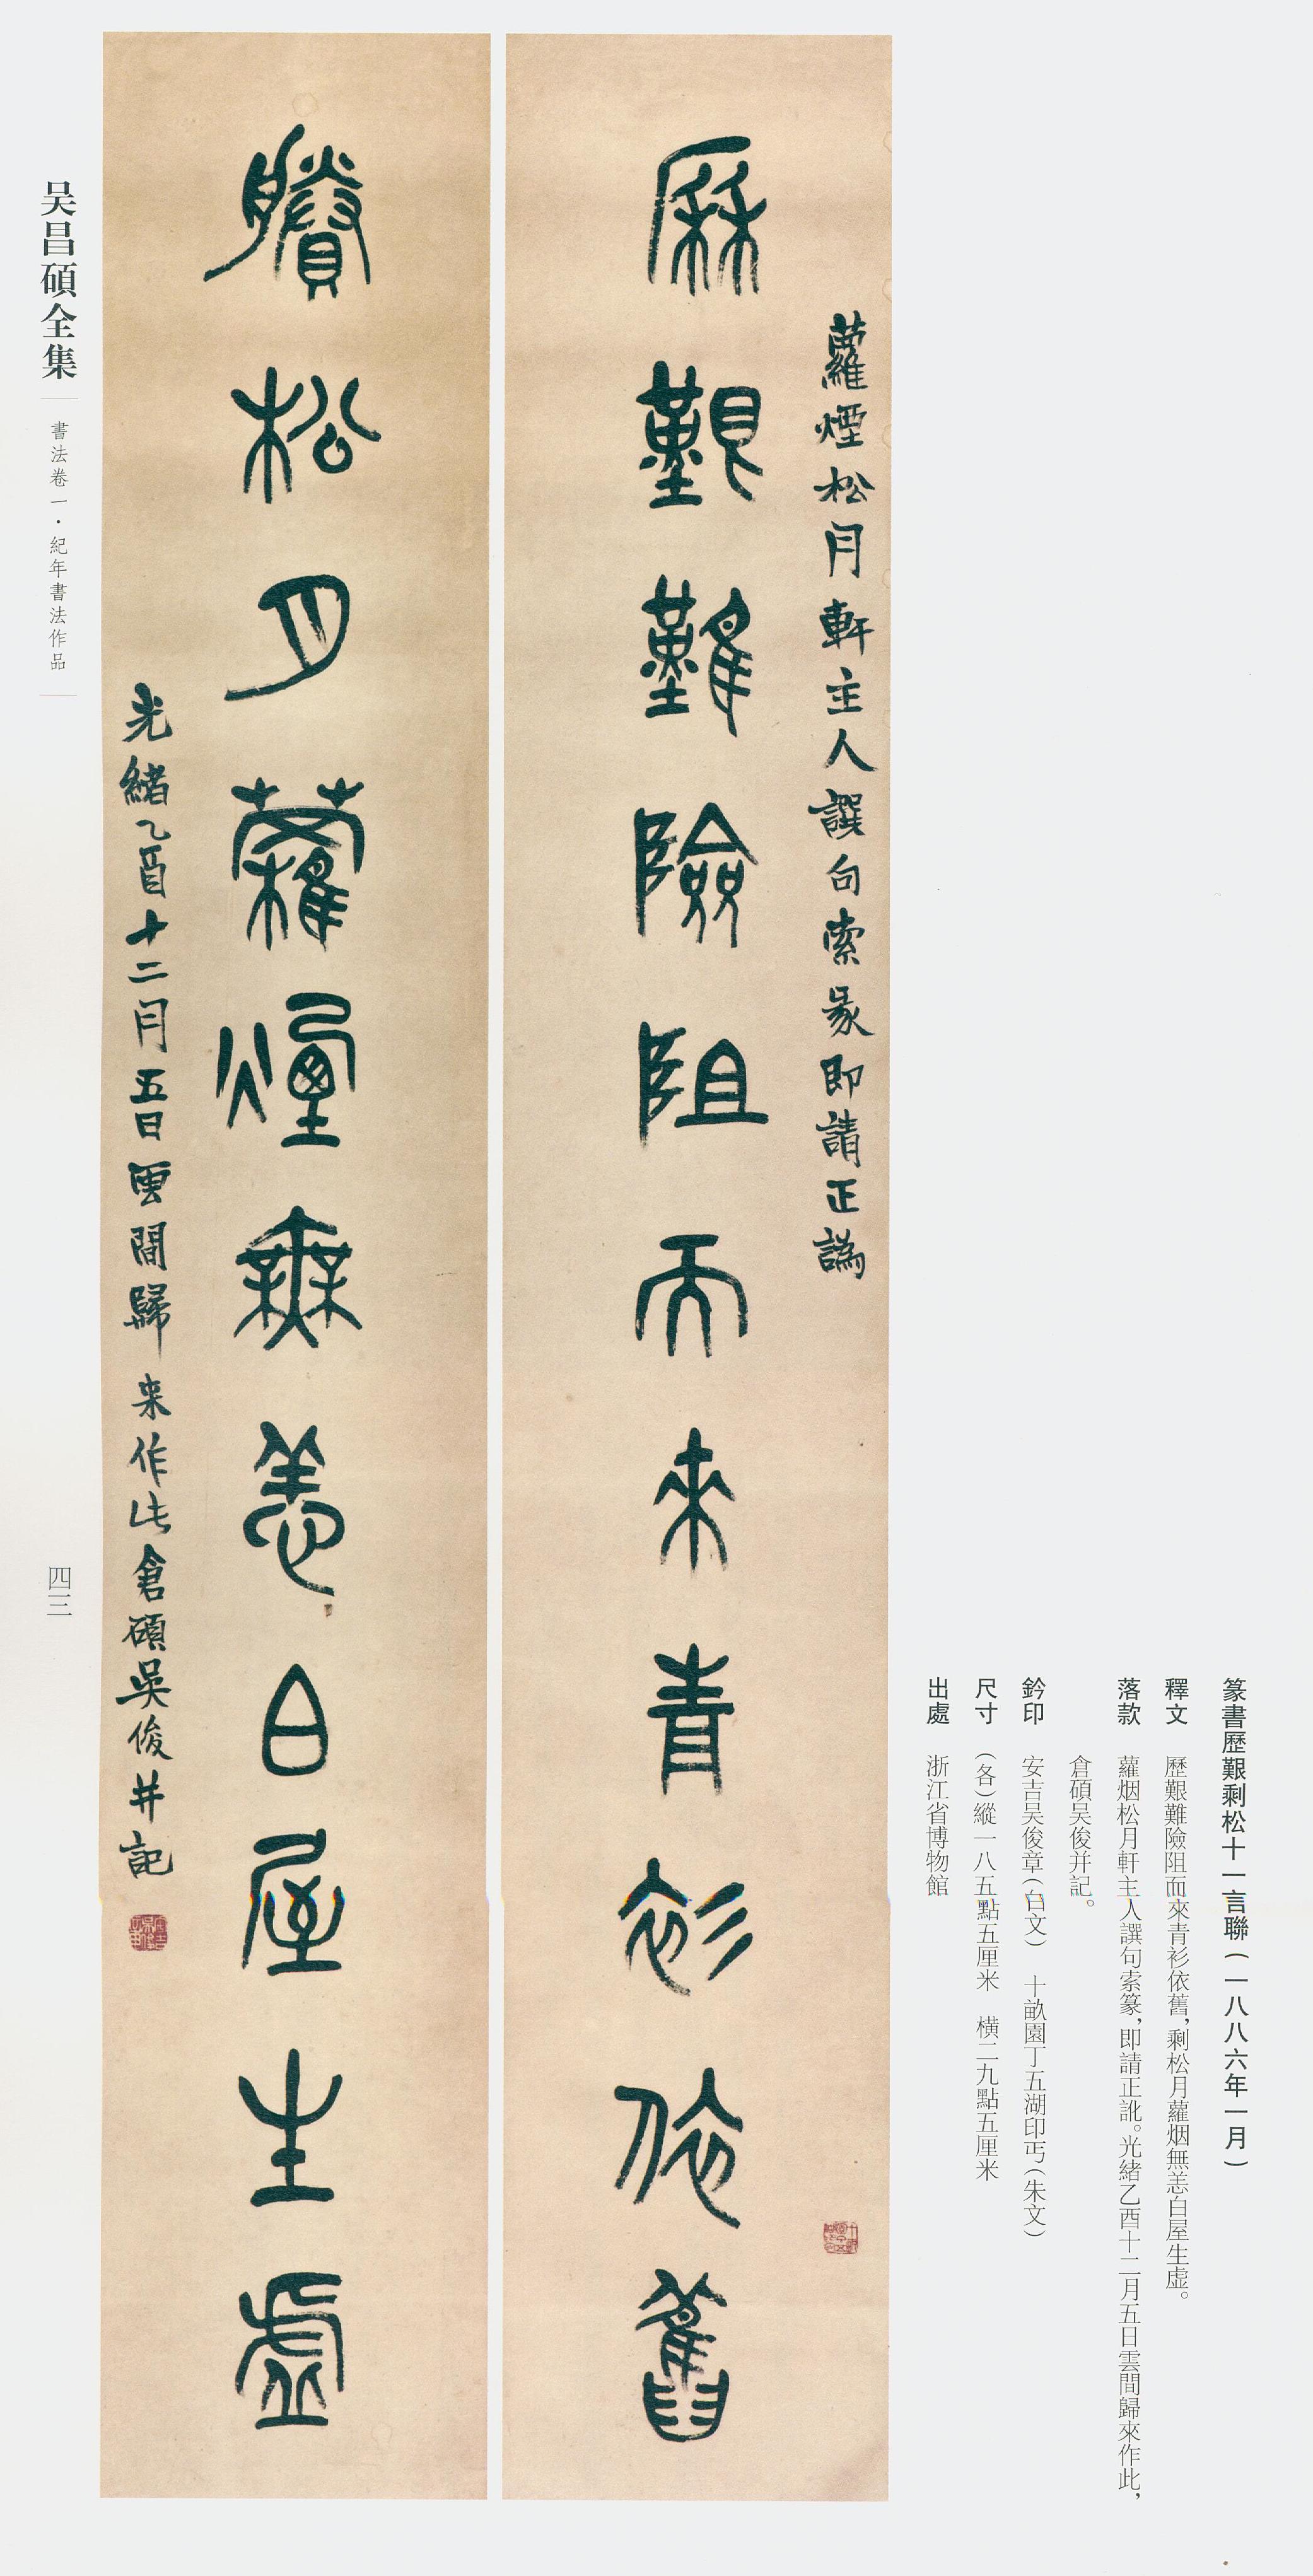 篆書歷艱剩松十一言聯(一八八六年一月)
釋文 歷艱難險阻而來青衫依舊,剩松月蘿烟無恙白屋生虛。
落款 蘿烟松月軒主人譔句索篆,即請正訛。光緒乙酉十二月五日雲間歸來作此,
倉碩吴俊并記。
鈐印 安吉吴俊章(白文) 十畝園丁五湖印丐(朱文)
尺寸 (各)縱一八五點五厘米 横二九點五厘米
出處 浙江省博物館
蘿煙松月軒主人譔句索篆即請正譌
厤艱難險阻而來青衫依舊
賸松月蘿煙無恙白屋生虛
光緒乙酉十二月五日雲間歸來作此倉碩吳俊并記
吴昌碩全集
書法卷一·紀年書法作品
四三